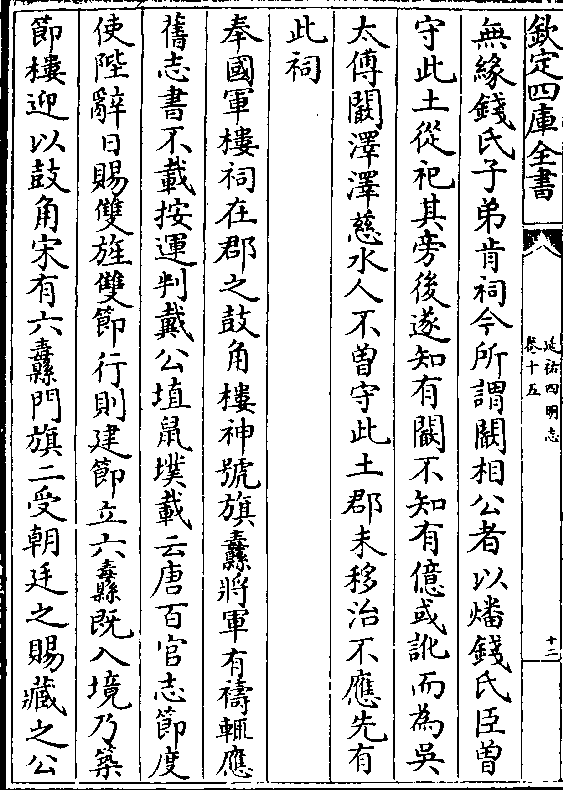 欽定四庫全書
延祐四明志
卷十五
十二
無緣錢氏子弟肯祠今所謂闞相公者以燔錢氏臣曽
守此土從祀其旁後遂知有闞不知有億或訛而為吳
太傅闞澤澤慈水人不曽守此土郡未移治不應先有
此祠
奉國軍樓祠在郡之鼓角樓神號旗纛將軍有禱輒應
舊志書不載按運判戴公埴鼠墣載云唐百官志節度
使陛辭日賜雙旌雙節行則建節立六纛既入境乃築
節樓迎以鼓角宋有六纛門旗二受朝廷之賜藏之公